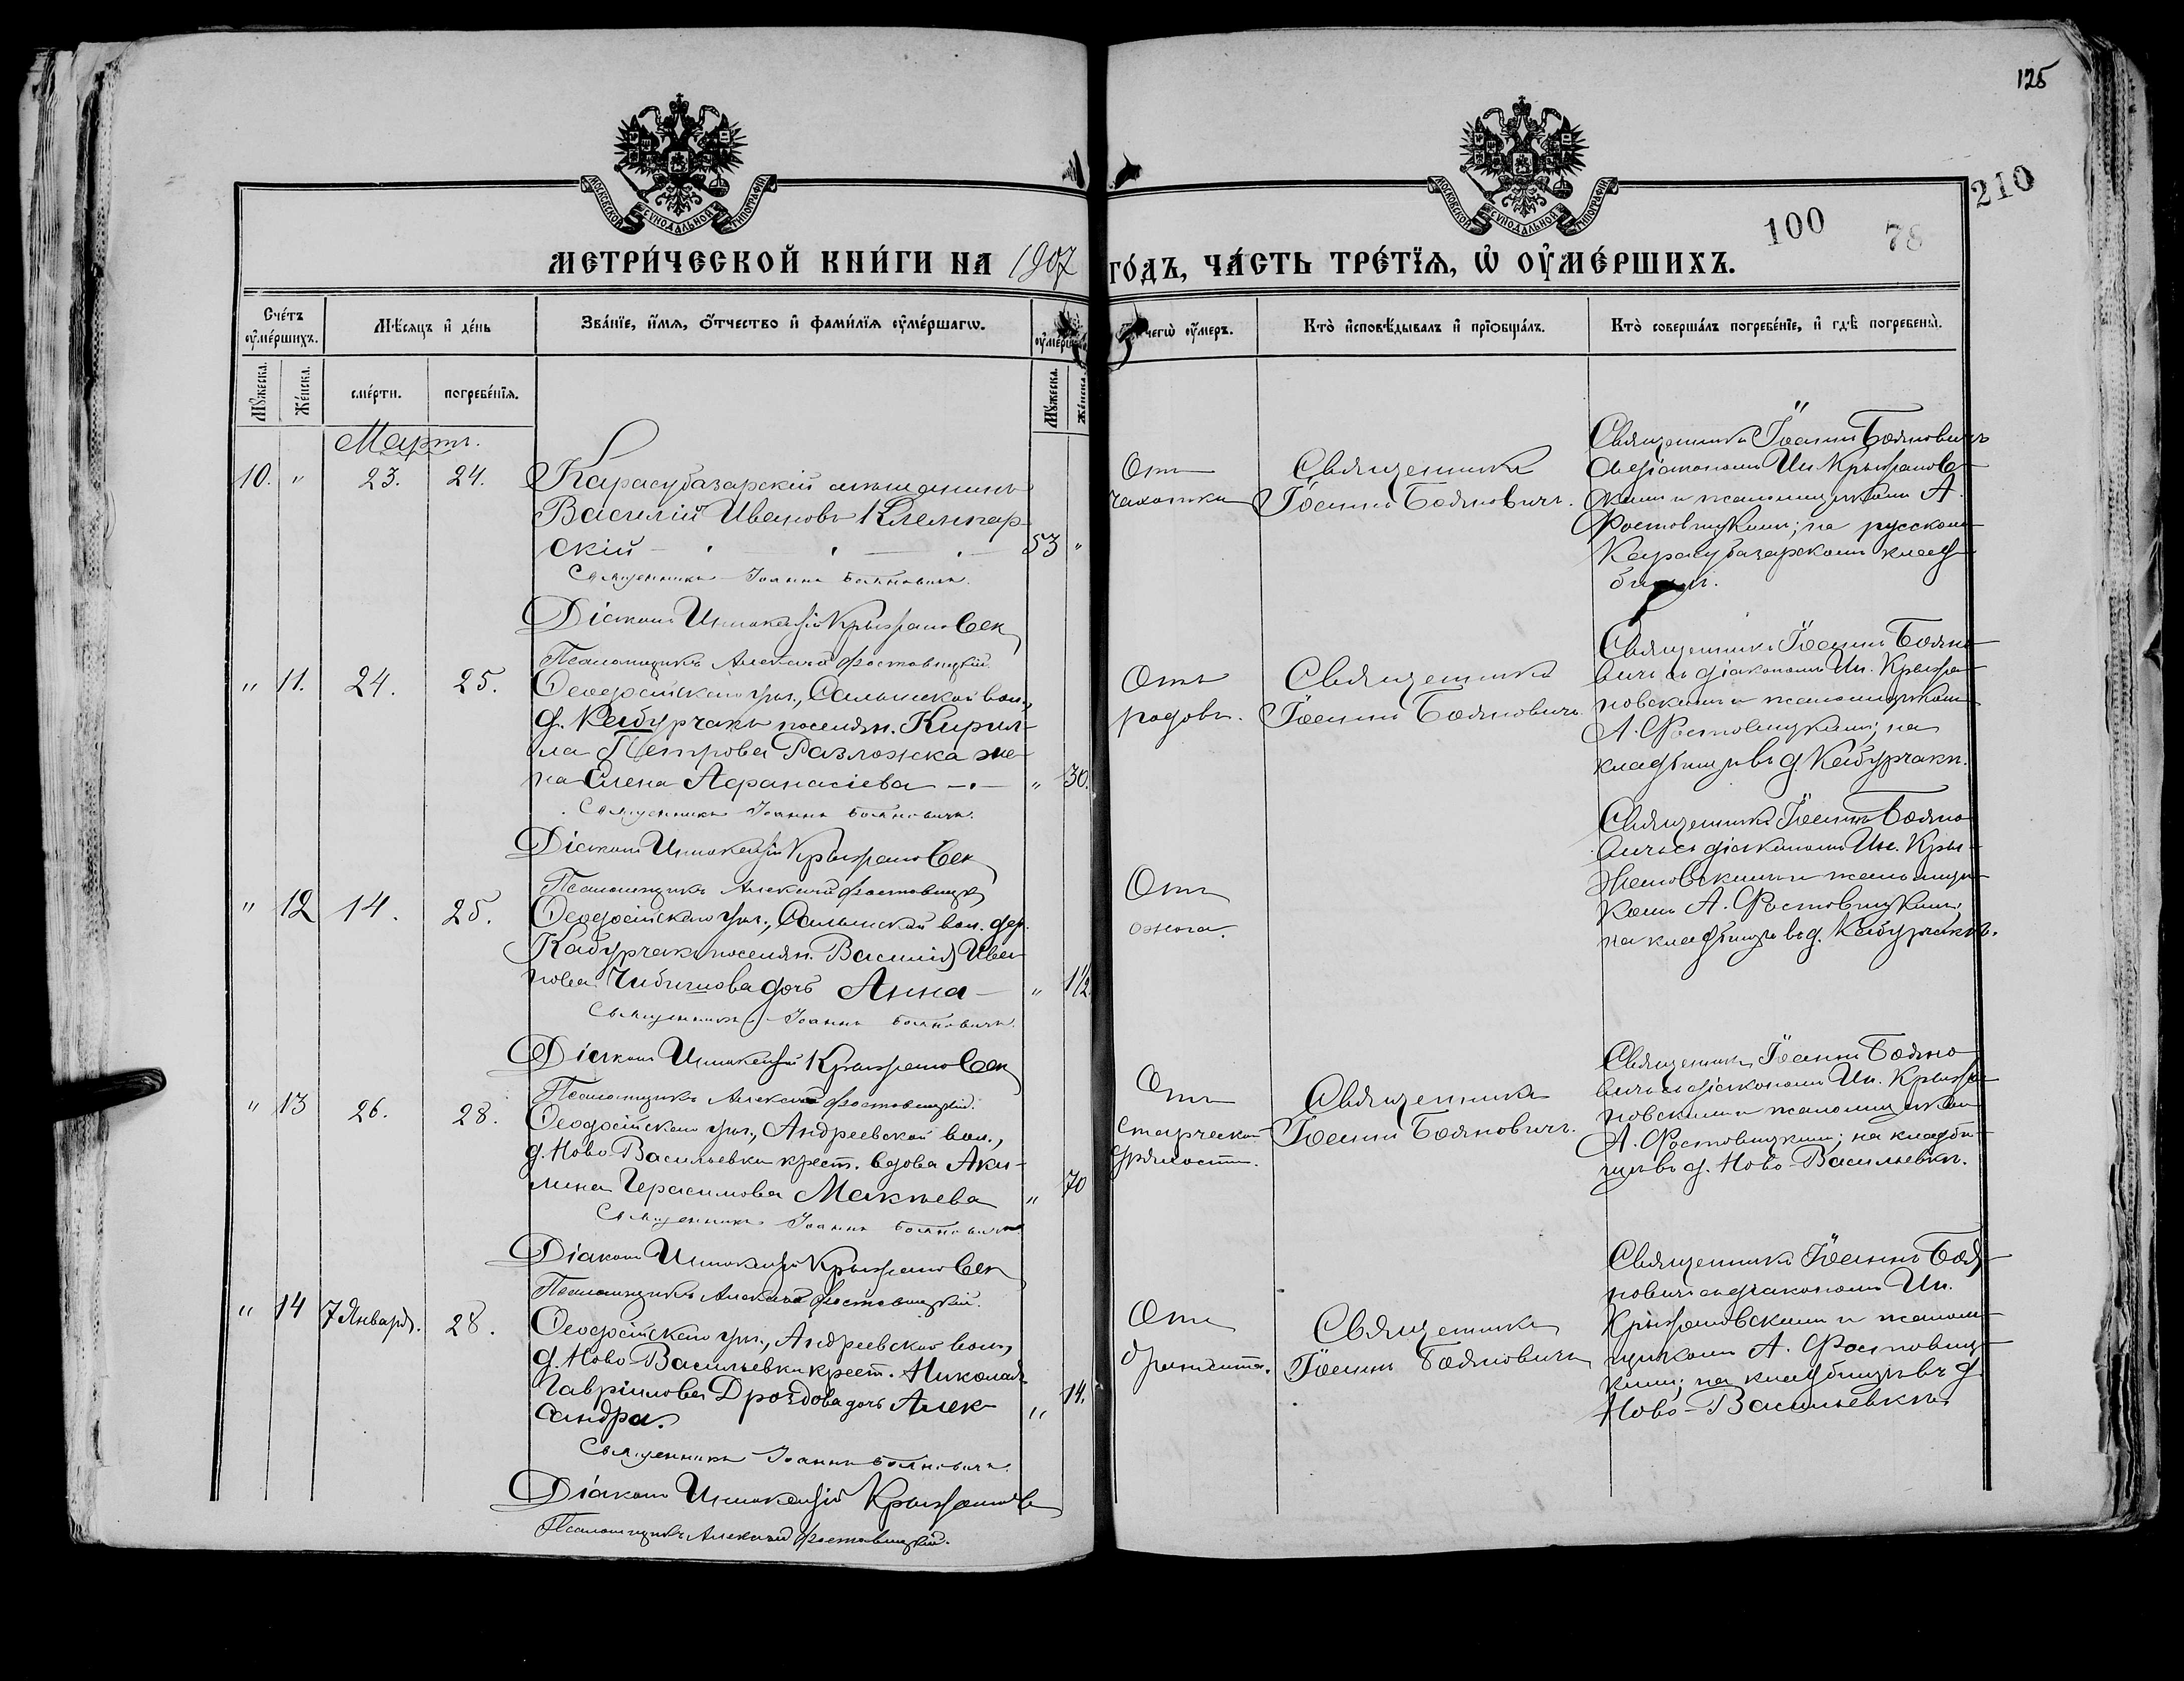 125
210
100
78
МОСКОВСКОЙ СѴНОДАЛЬНОЙ ТИПОГРАФІИ
МОСКОВСКОЙ СѴНОДАЛЬНОЙ ТИПОГРАФІИ
МЕТРИ́ЧЕСКОЙ КНИ́ГИ НА 1907 ГО́ДЪ, ЧА́СТЬ ТРЕ́ТЇѦ, Ѡ ОУ҆МЕ́РШИХЪ.
Счетъ оумершихъ.
Мѣсяцъ и день
Званїе, имя, отчество и фамилїя оумершагѡ.
Кто исповѣдывалъ и прїобщалъ.
Кто совершалъ погребенїе, и гдѣ погребены.
Мужеска.
Женска.
смерти.
погребенїя.
Мужеска.
Женска.
Мартъ.
10. " 23. 24.
Карасубазарскій мѣщанинъ
Василій Ивановъ Клемпар-
скій 53 "
Священникъ Іоаннъ Бояновичъ.
Діаконъ Иннокентій Крыжановск
Псаломщикъ Алексій Фостовицкій.
Отъ
чахотки
Священникъ
Іоаннъ Бояновичъ.
Священникъ Іоаннъ Бояновичъ
съ діакономъ Ин. Крыжановс-
кимъ и псаломщикомъ А.
Фостовицкимъ; на русскомъ
Карасубазарскомъ клад-
бищѣ.
" 11. 24. 25.
Ѳеодосійскаго уѣз., Салынской вол.,
д. Кабурчакъ поселян. Кирил-
ла Петрова Разложка же-
на Елена Афанасіева " 30.
Священникъ Іоаннъ Бояновичъ.
Діаконъ Иннокентій Крыжановск
Псаломщикъ Алексій Фостовицк
Отъ
родовъ.
Священникъ
Іоаннъ Бояновичъ
Священникъ Іоаннъ Бояно-
вичъ съ діакономъ Ин. Крыжа-
новскимъ и псаломщикомъ
А. Фостовицкимъ; на
кладбищѣ въ д. Кабурчакъ.
" 12 14. 25.
Ѳеодосійскаго уѣз., Салынской вол. дер.
Кабурчакъ поселян. Василія Ива-
нова Чибичова дочь Анна " 1½
Священникъ Іоаннъ Бояновичъ.
Діаконъ Иннокентій Крыжановск
Псаломщикъ Алексій Фостовицкій.
Отъ
ожога.
Священникъ Іоаннъ Бояно-
вичъ съ діакономъ Ин. Кры-
жановскимъ и псаломщи-
комъ А. Фостовицкимъ;
на кладбищѣ въ д. Кабурчакъ.
" 13 26. 28.
Ѳеодосійскаго уѣз., Андреевской вол.,
д. Ново-Васильевки крест. вдова Аку-
лина Герасимова Макѣева " 70
Священникъ Іоаннъ Бояновичъ
Діаконъ Иннокентій Крыжановск
Псаломщикъ Алексій Фостовицкій.
Отъ
старческой
дряхлости.
Священникъ
Іоаннъ Бояновичъ.
Священникъ Іоаннъ Бояно-
вичъ съ діакономъ Ин. Крыжа-
новскимъ и псаломщикомъ
А. Фостовицкимъ; на кладби-
щѣ въ д. Ново-Васильевкѣ.
" 14 7 Января. 28.
Ѳеодосійскаго уѣз., Андреевской вол.,
д. Ново-Васильевки крест. Николая
Гавріилова Дроздова дочь Алек-
сандра. " 14.
Священникъ Іоаннъ Бояновичъ.
Діаконъ Иннокентій Крыжановск
Псаломщикъ Алексій Фостовицкій.
Отъ
бронхита.
Священникъ
Іоаннъ Бояновичъ
Священникъ Іоаннъ Боя-
новичъ съ діакономъ Ин.
Крыжановскимъ и псалом-
щикомъ А. Фостовиц-
кимъ; на кладбищѣ въ д.
Ново-Васильевкѣ.